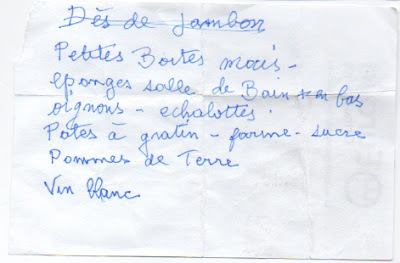 Dès de Jambon
Petites Boites maïs -
éponges salle de Bain + en bas
oignons - echalottes.
Pâtes à gratin - farine - sucre
Pommes de Terre
Vin blanc